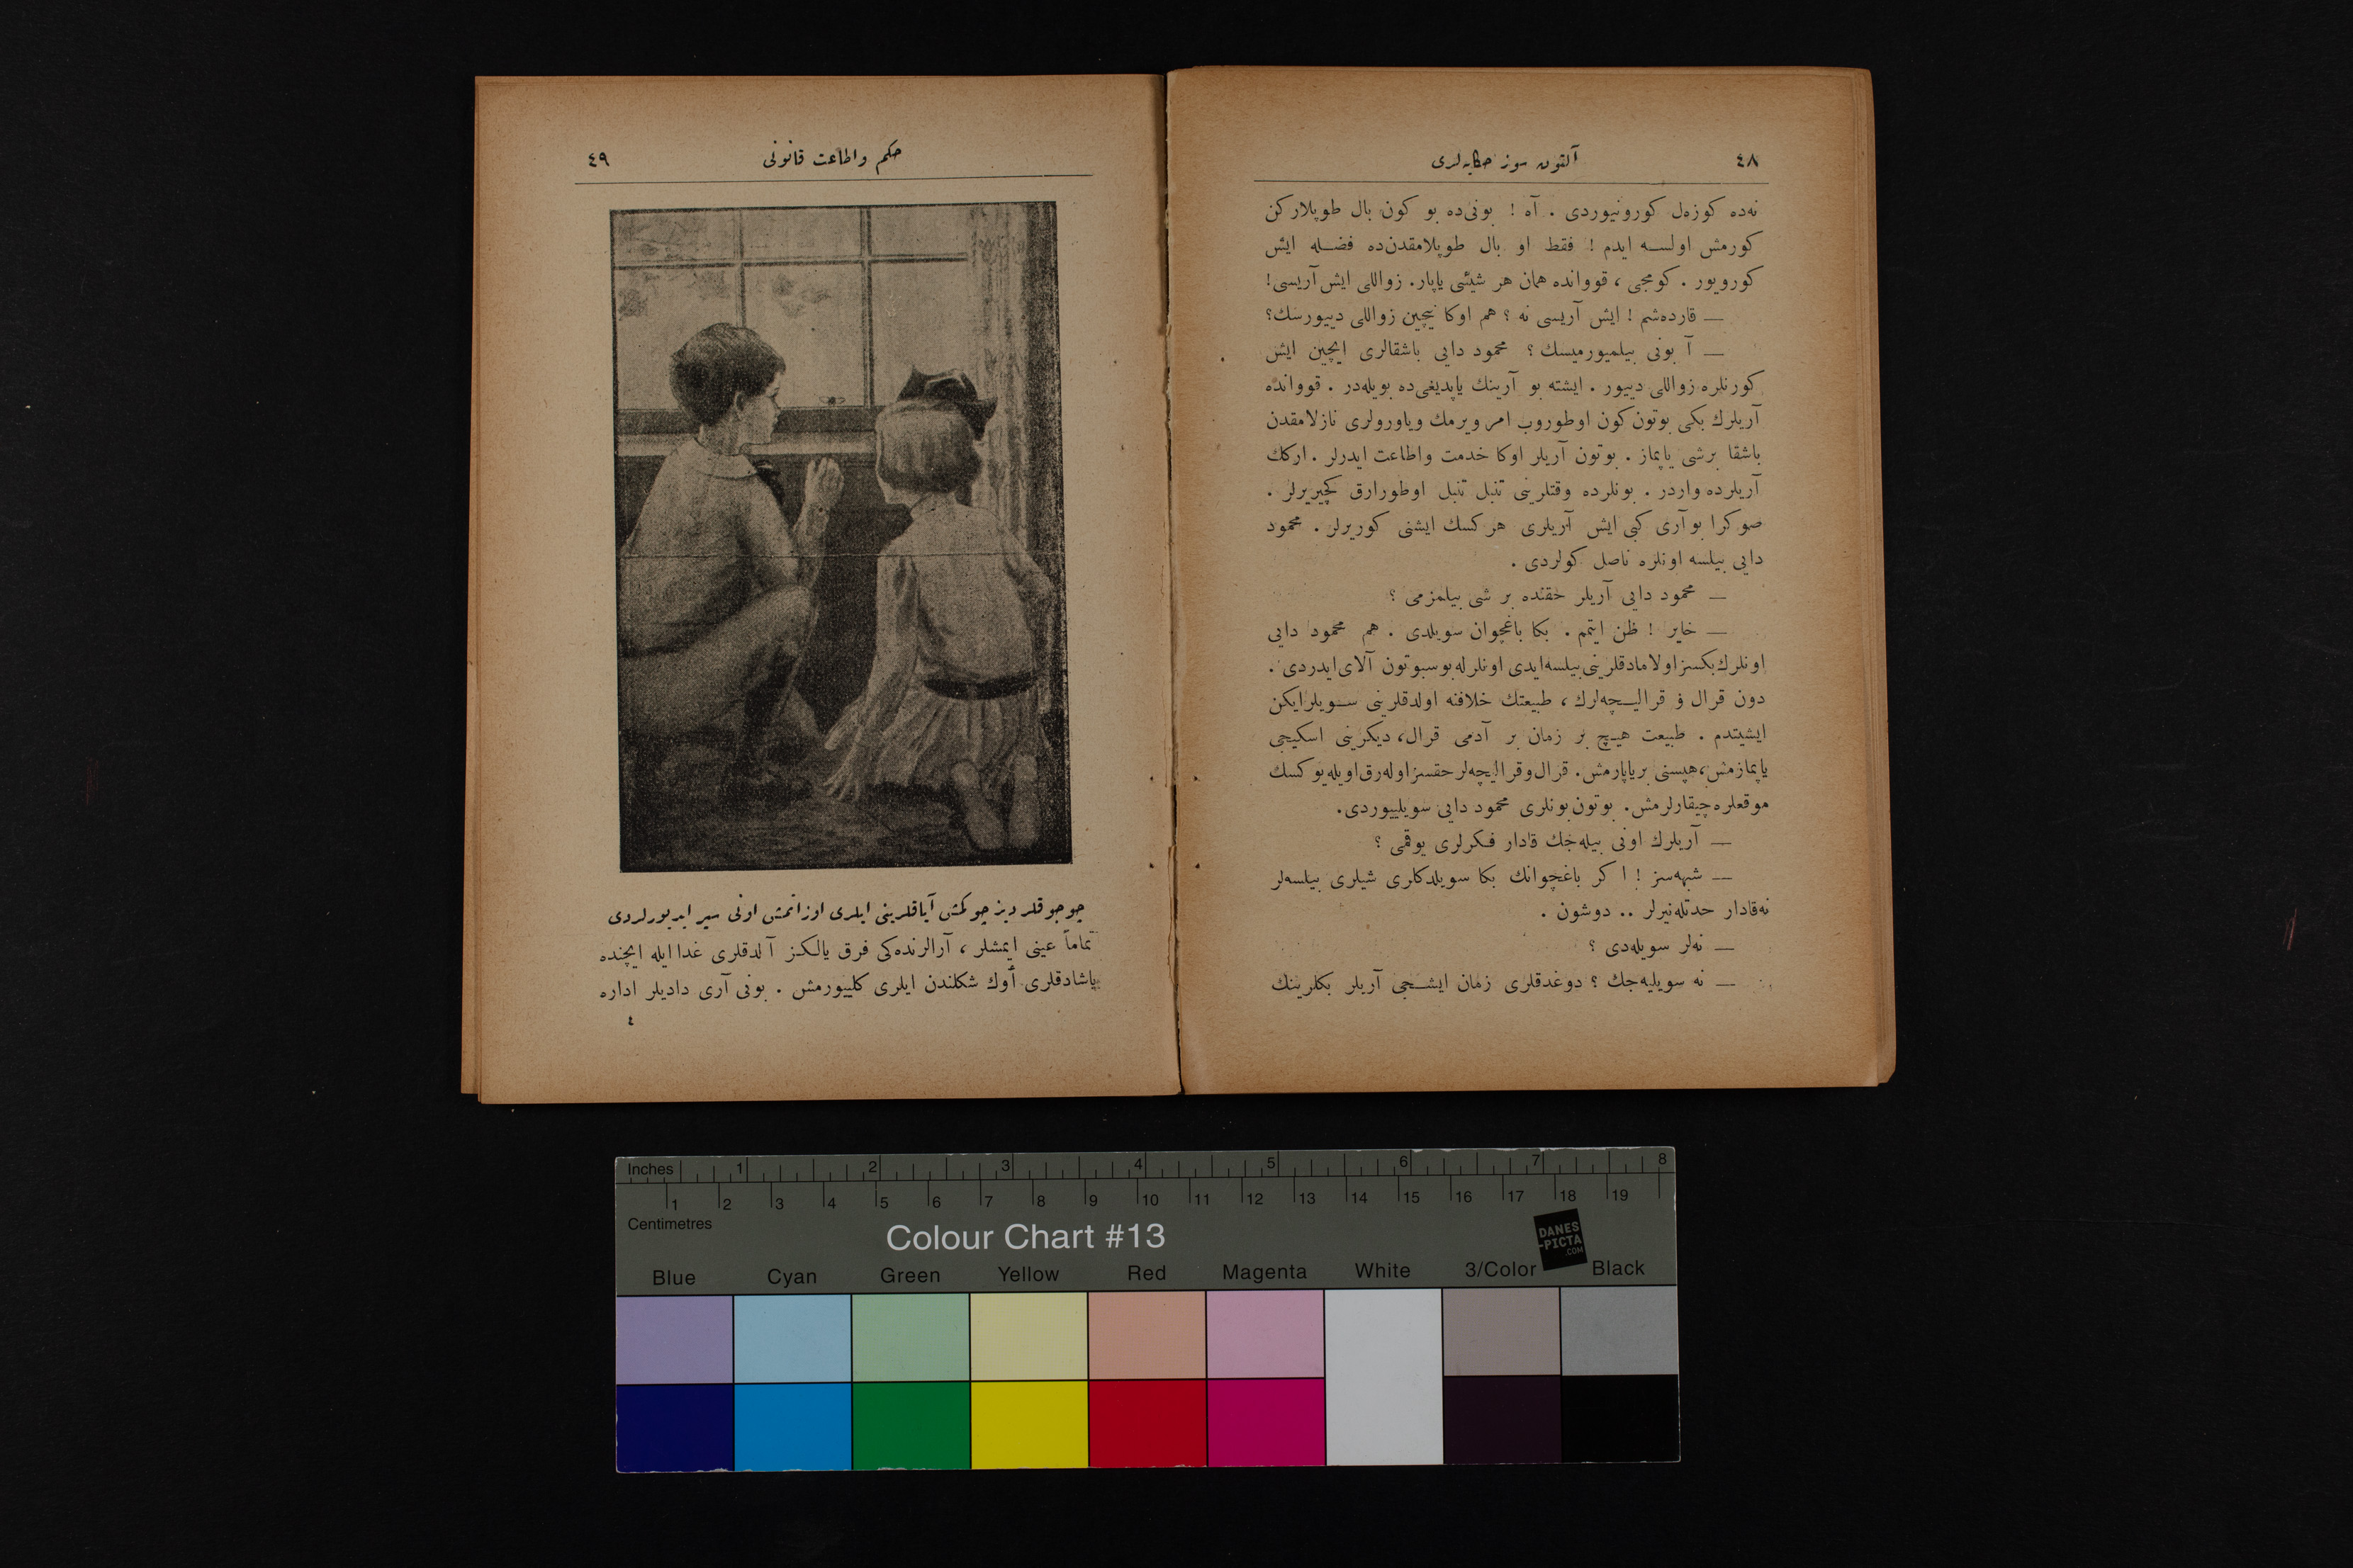 ٤٨
آلتون سوز حكایه‌لری
نه‌ده كوزه‌ل كورونیوردی . آه ! بونی‌ده بو كون بال طوپلاركن
كورمش اولسه ایدم ! فقط او بال طوپلامقدن‌ده فضله ایش
كورویور . كومجی ، قووانده همان هر شیئی یاپار. زواللی ایش آریسی!
— قارده‌شم ! ایش آریسی نه ؟ هم اوكا نیچین زواللی دییورسك؟
— آ بونی بیلمیورمیسك ؟ محمود دایی باشقالری ایچین ایش
كورنلره زواللی دییور . ایشته بو آرینك یاپدیغی‌ده بویله‌در . قووانده
آریلرك بكی بوتون كون اوطوروب امر ویرمك ویاورولری نازلامقدن
باشقا برشی یاپماز . بوتون آریلر اوكا خدمت واطاعت ایدرلر . اركك
آریلرده واردر . بونلرده وقتلرینی تنبل تنبل اوطورارق كچیریرلر .
صوكرا بو آری كبی ایش آریلری هركسك ایشنی كوریرلر . محمود
دایی بیلسه اونلره ناصل كولردی .
— محمود دایی آریلر حقنده بر شی بیلمزمی ؟
— خایر ! ظن ایتمم . بكا باغچوان سویلدی . هم محمود دایی
اونلرك بكسز اولامادقلرینی بیلسه ایدی اونلرله بوسبوتون آلای ایدردی .
دون قرال و قرالیچه‌لرك ، طبیعتك خلافنه اولدقلرینی سویلرایكن
ایشیتدم . طبیعت هیچ بر زمان بر آدمی قرال، دیكرینی اسكیجی
یاپمازمش، هپسنی بر یاپارمش. قرال وقرالیچه‌لر حقسز اوله‌رق اویله یوكسك
موقعلره چیقارلرمش. بوتون بونلری محمود دایی سویلییوردی.
— آریلرك اونی بیله‌جك قادار فكرلری یوقمی ؟
— شبهه‌سز ! اكر باغچوانك بكا سویلدكلری شیلری بیلسه‌لر
نه‌قادار حدتله‌نیرلر .. دوشون .
— نه‌لر سویله‌دی ؟
— نه سویلیه‌جك ؟ دوغدقلری زمان ایشجی آریلر بكلرینك
حكم واطاعت قانونی
٤٩
چوجوقلر دیز چوكمش آیاقلرینی ایلری اوزاتمش اونی سیر ایدیورلردی
تماماً عینی ایمشلر ، آرالرنده‌كی فرق یالكز آلدقلری غدا ایله ایچنده
یاشادقلری أوك شكلندن ایلری كلییورمش . بونی آری دادیلر اداره
٤
Inches 1 2 3 4 5 6 7 8
1 2 3 4 5 6 7 8 9 10 11 12 13 14 15 16 17 18 19
Centimetres
Colour Chart #13
DANES
-PICTA
.COM
Blue Cyan Green Yellow Red Magenta White 3/Color Black